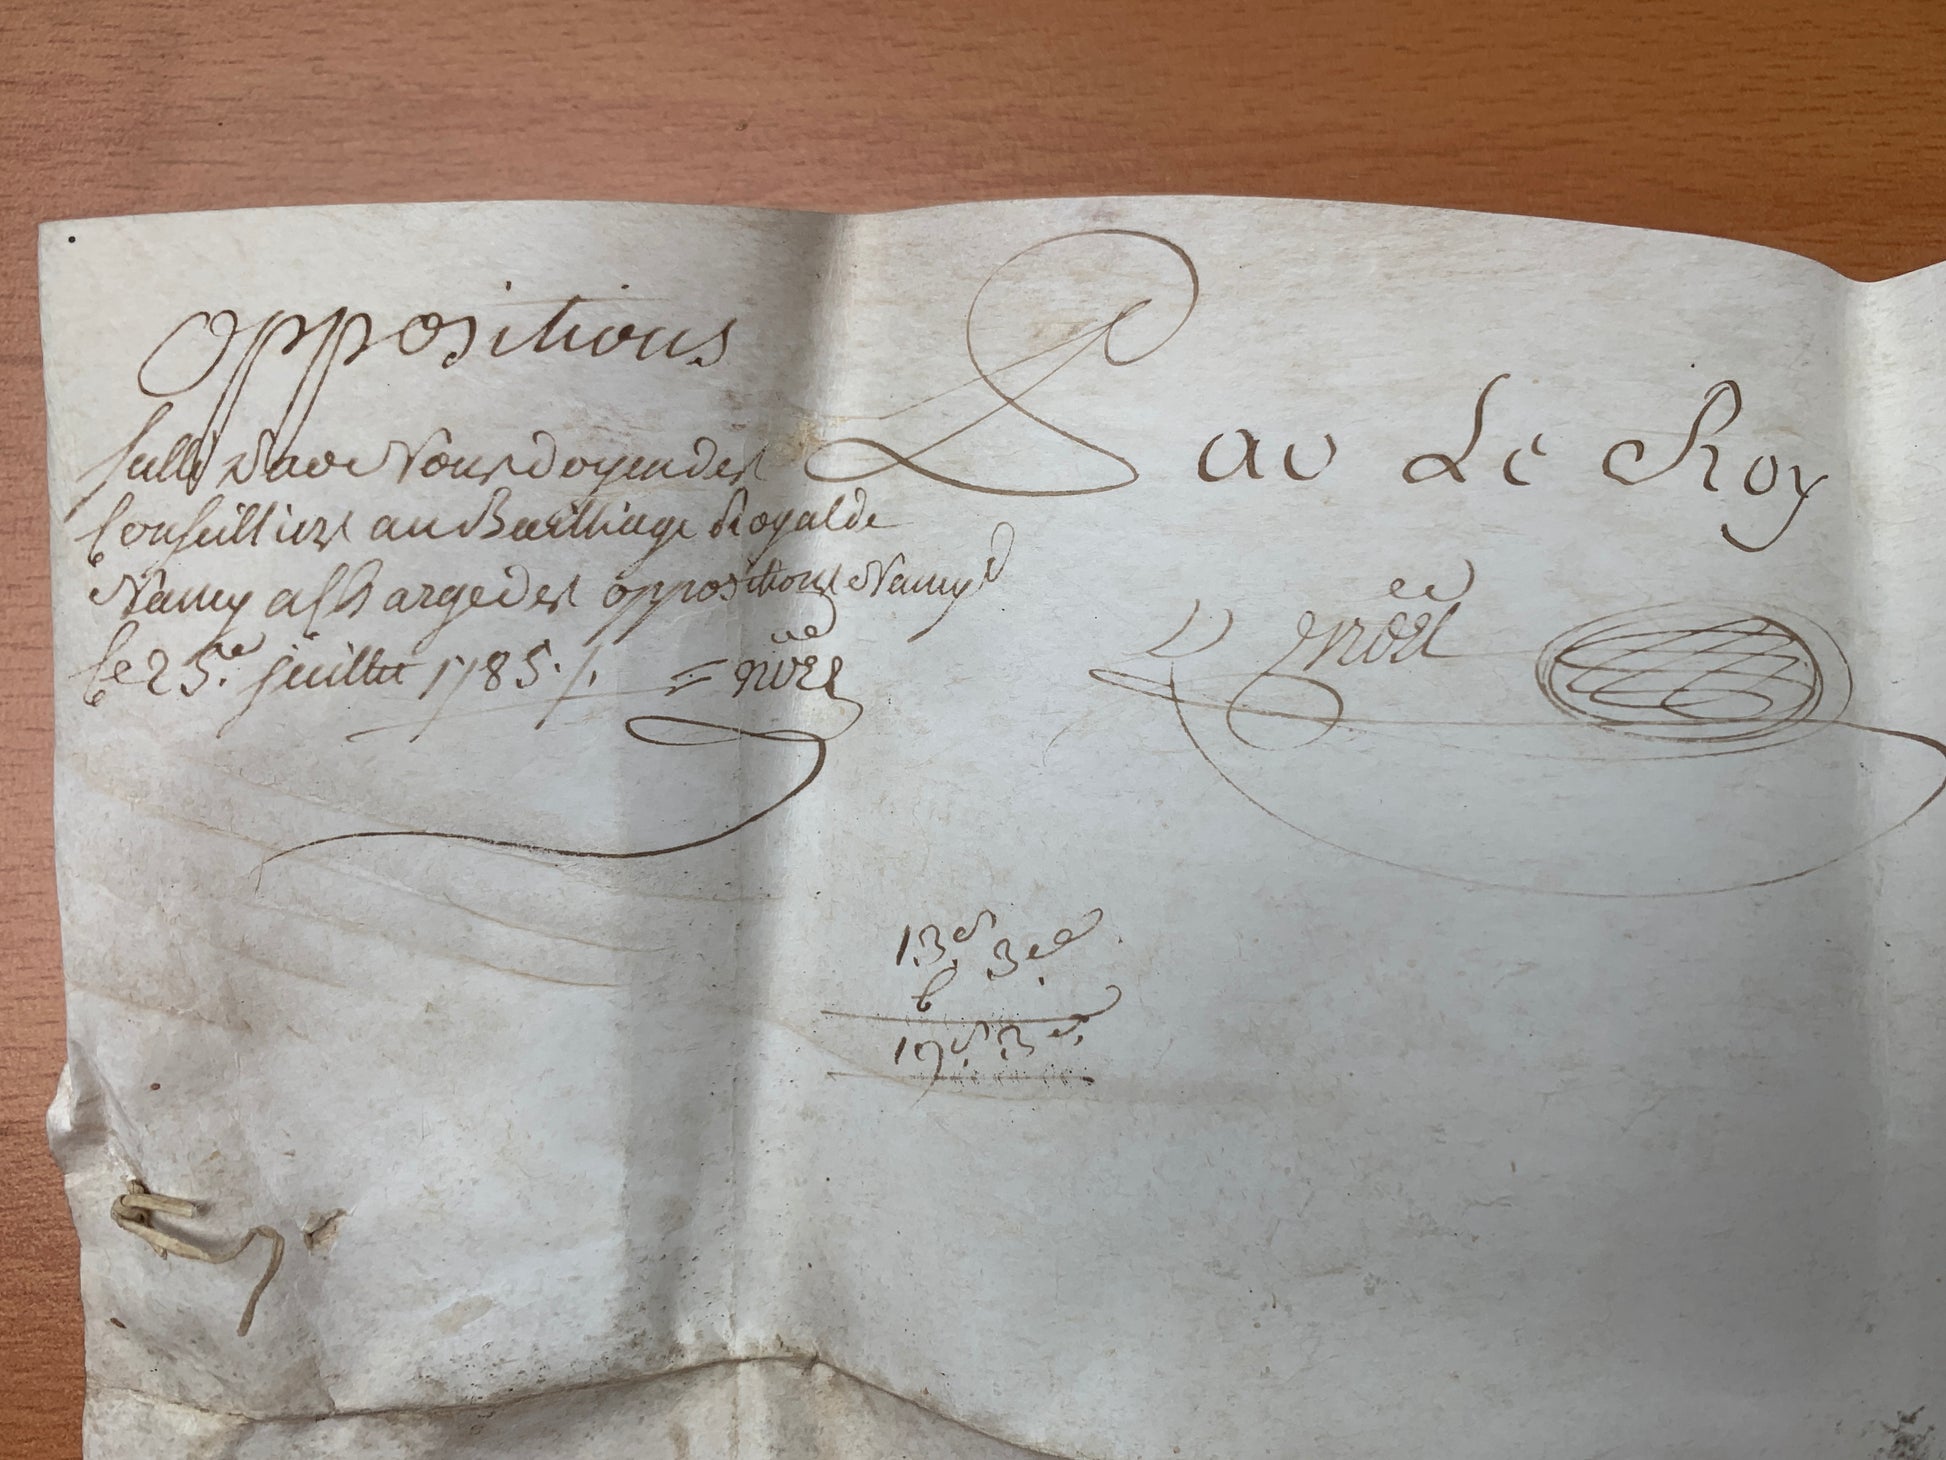 oppositions
scellé par Nous doyen des
Conseilliers au Bailliage Royal de
Nancy a Charge des oppositions Nancy
le 25.e juillet 1785 ./. = noël
Par Le Roy
noël
13. 3.
6
19. 3.